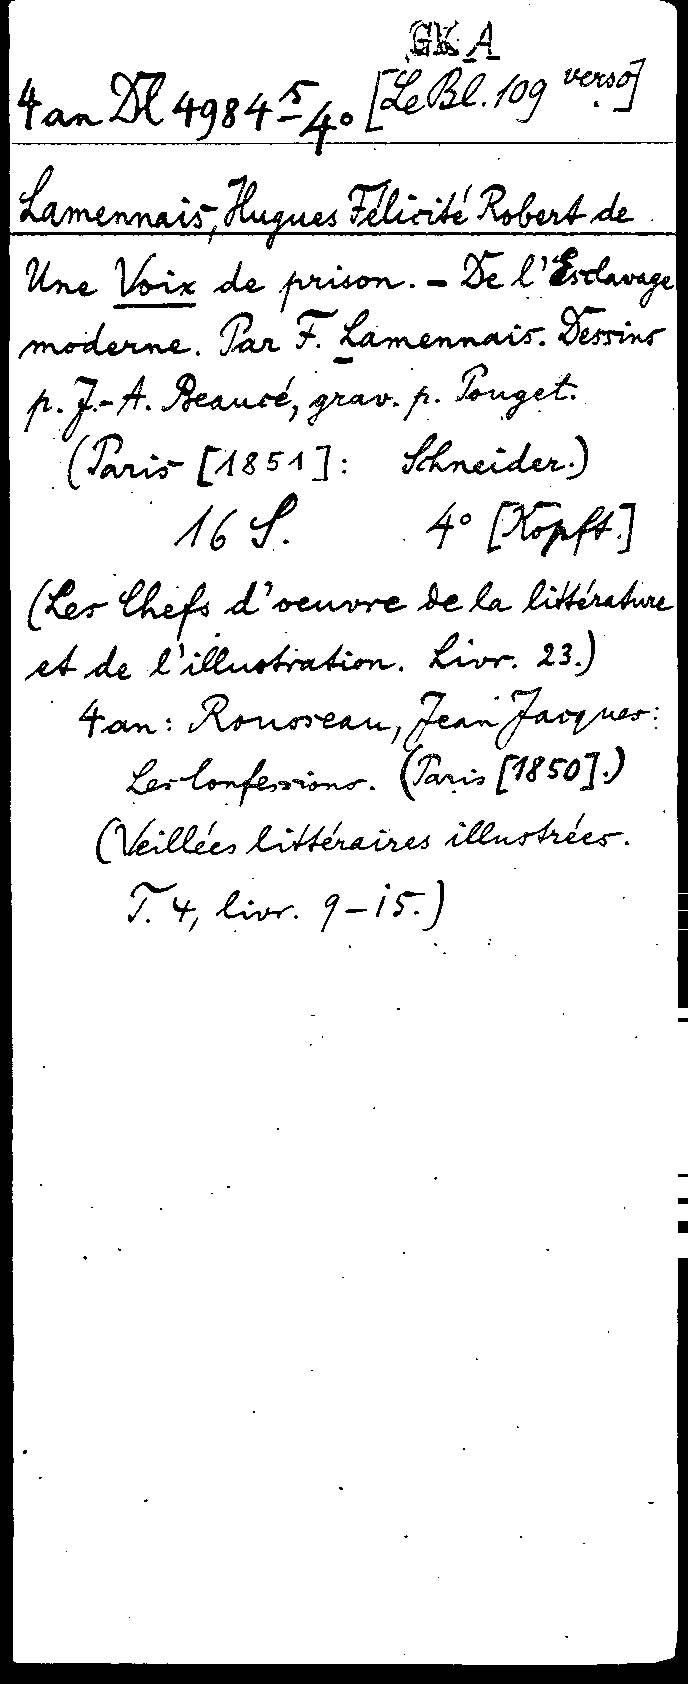 GK A
4 an Dl 4984 5 4° [Le Bl. 109 verso]
Lamennais, Hugues Félicité Robert de
Une Voix de prison. – De l'Esclavage
moderne. Par F. Lamennais. Dessins
p. J.-A. Beaucé, grav. p. Pouget.
(Paris [1851]: Schneider.)
16 S. 4° [Kopft.]
(Les Chefs d'oeuvre de la littérature
et de l'illustration. Livr. 23.)
4 an: Rousseau, Jean Jacques:
Les Confessions. (Paris [1850].)
(Veillées littéraires illustrées.
T. 4, livr. 9–15.)